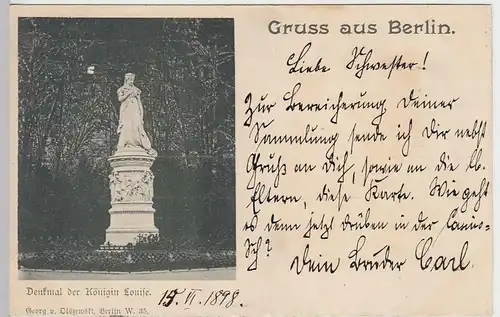 Gruss aus Berlin.
Liebe Schwester!
Zur Bereicherung Deiner
Sammlung sende ich Dir nebst
Gruß an Dich, sowie an die lb.
Eltern, diese Karte. Wie geht
es denn jetzt drüben in der
Sch?
Dein Bruder Carl.
Denkmal der Königin Louise.
15. VI. 1898.
Georg v. Olszewski, Berlin W. 35.